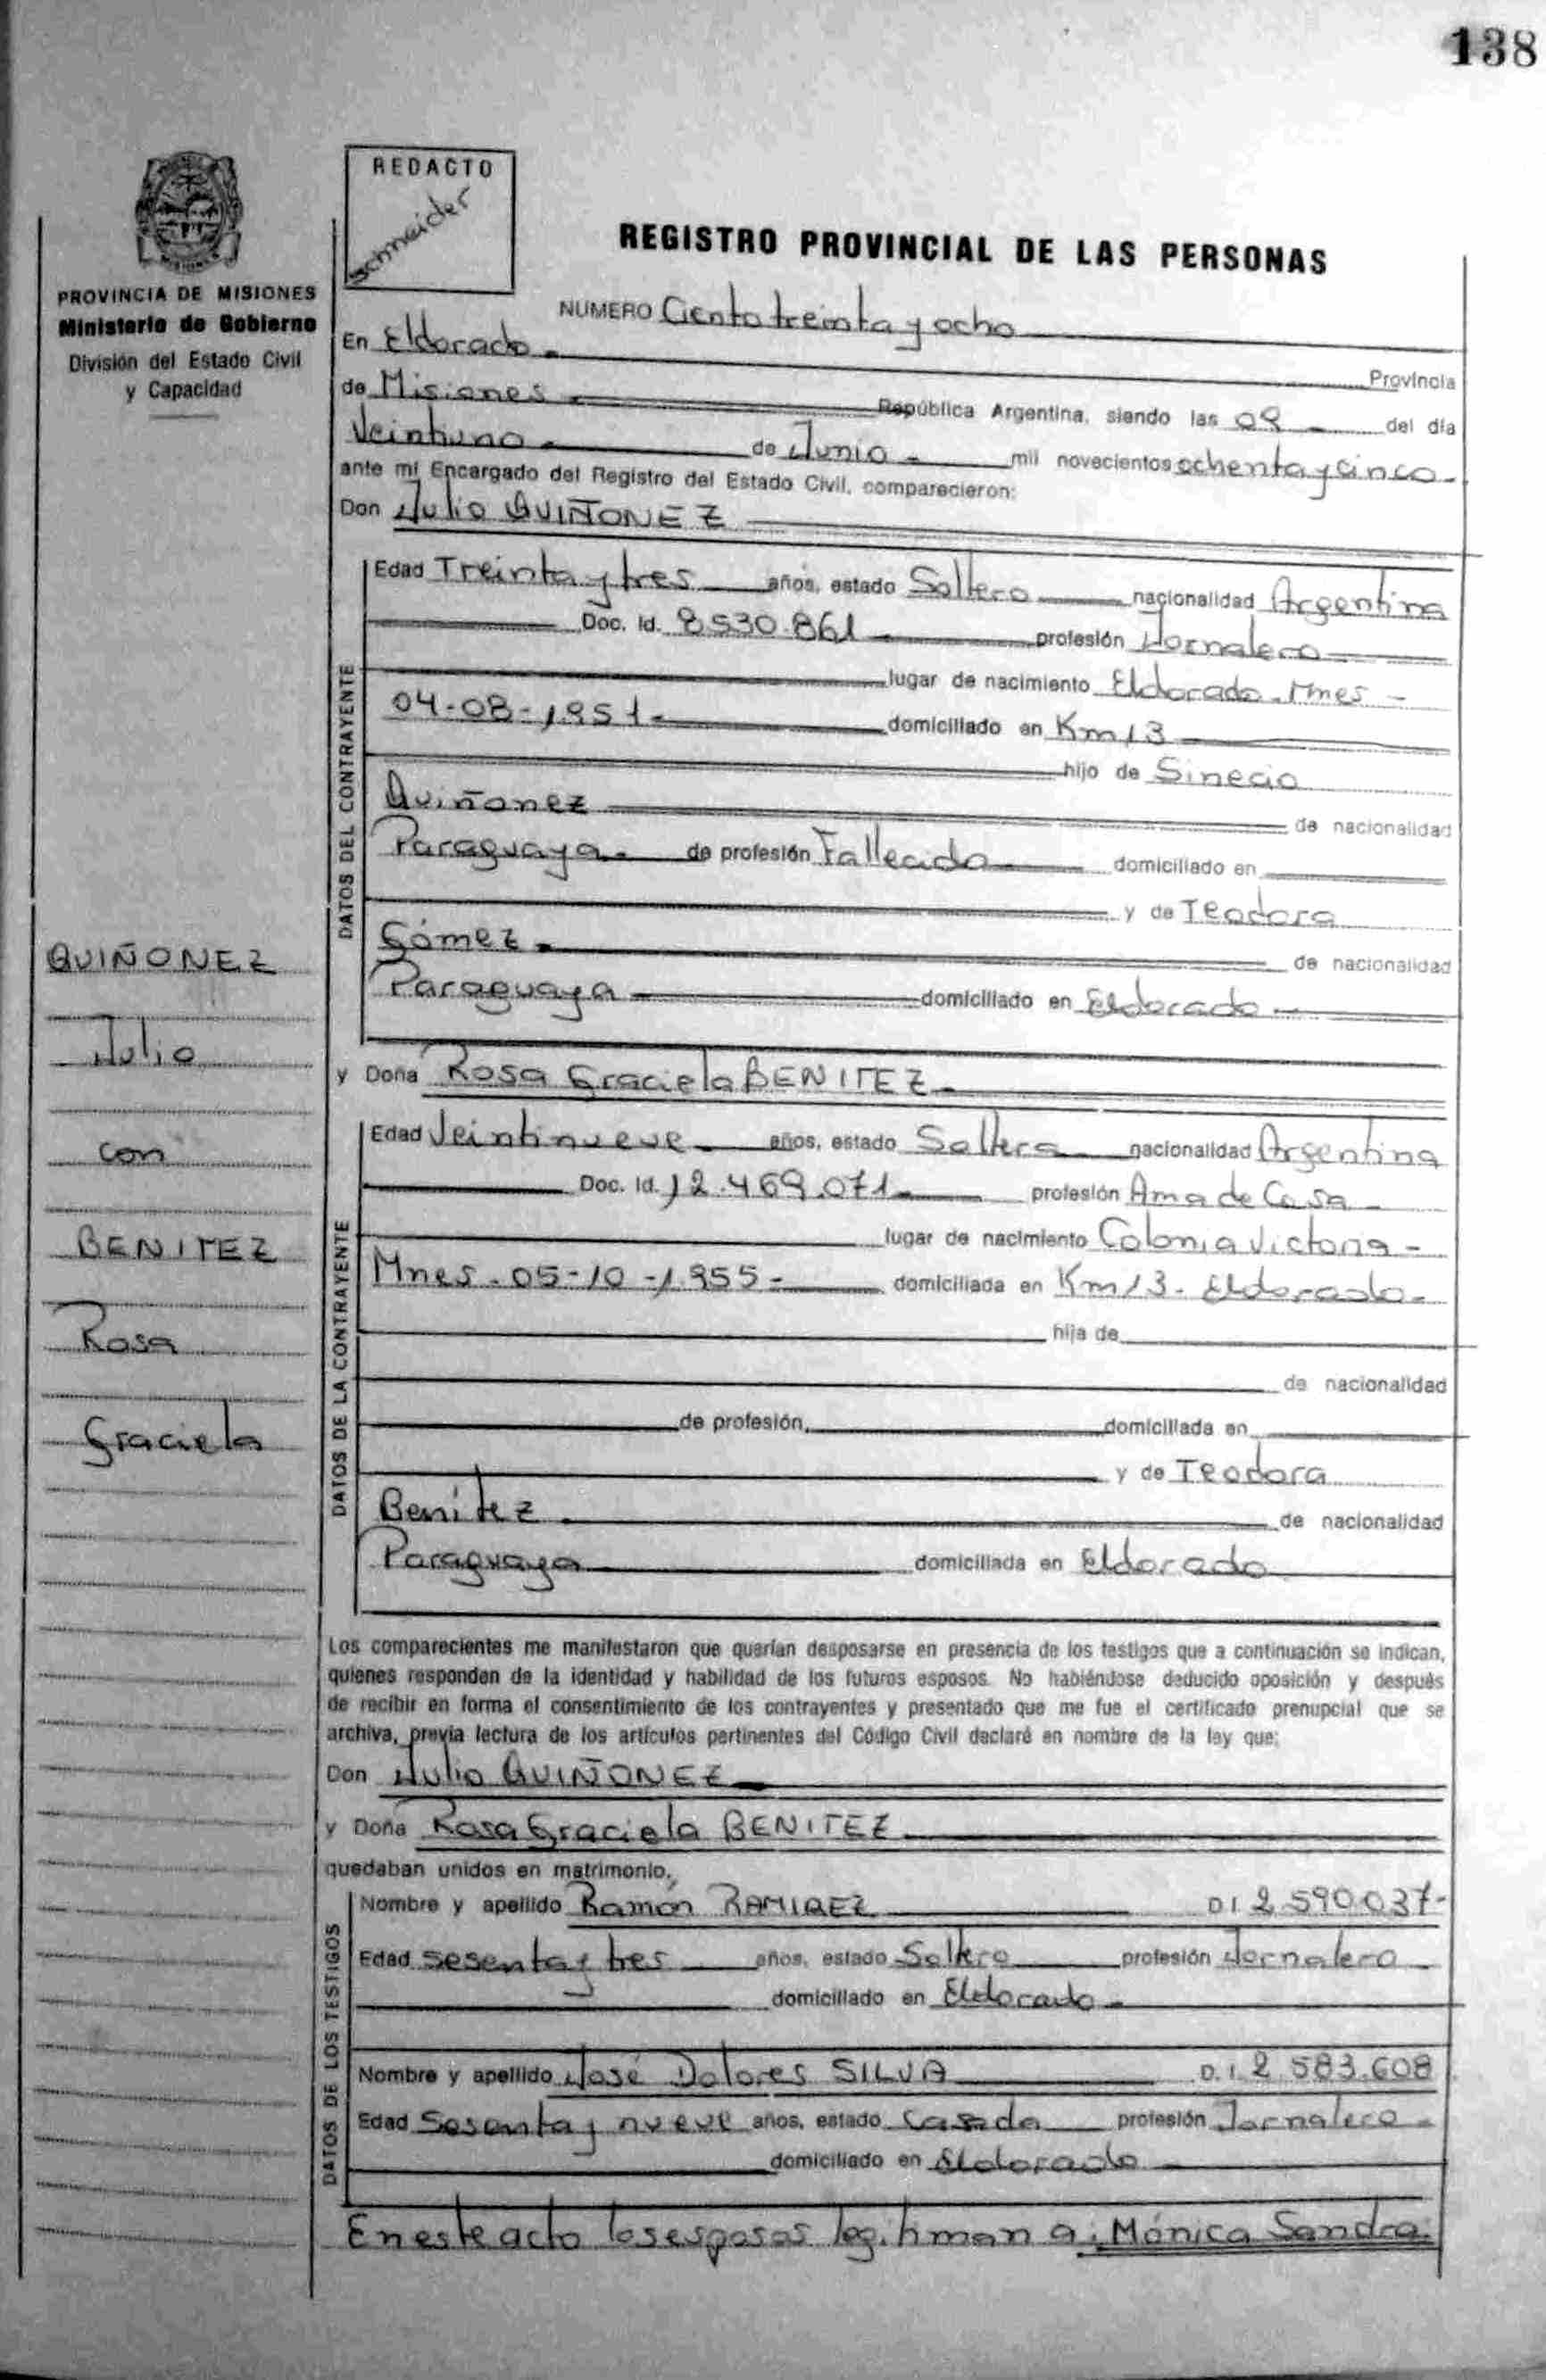 138
REDACTO
Schneider
PROVINCIA DE MISIONES
Ministerio de Gobierno
División del Estado Civil
y Capacidad
REGISTRO PROVINCIAL DE LAS PERSONAS
NUMERO Ciento treinta y ocho
En Eldorado - Provincia
de Misiones - República Argentina, siendo las 09 - del día
Veintiuno - de Junio - mil novecientos ochenta y cinco -
ante mí Encargado del Registro del Estado Civil, comparecieron:
Don Julio QUIÑONEZ
DATOS DEL CONTRAYENTE
Edad Treinta y tres años, estado Soltero nacionalidad Argentina
Doc. Id. 8530.861 profesión Jornalero
lugar de nacimiento Eldorado - Mnes -
04-08-1951- domiciliado en Km 13
hijo de Sinecio
Quiñonez de nacionalidad
Paraguaya - de profesión Fallecido domiciliado en
y de Teodora
Gómez - de nacionalidad
Paraguaya domiciliado en Eldorado -
y Doña Rosa Graciela BENITEZ -
DATOS DE LA CONTRAYENTE
Edad Veintinueve - años, estado Soltera nacionalidad Argentina
Doc. Id. 12.469.071 - profesión Ama de Casa -
lugar de nacimiento Colonia Victoria -
Mnes - 05-10-1955 - domiciliada en Km 13 - Eldorado -
hija de
de nacionalidad
de profesión, domiciliada en
y de Teodora
Benitez - de nacionalidad
Paraguaya domiciliada en Eldorado
QUIÑONEZ
Julio
con
BENITEZ
Rosa
Graciela
Los comparecientes me manifestaron que querían desposarse en presencia de los testigos que a continuación se indican,
quienes responden de la identidad y habilidad de los futuros esposos. No habiéndose deducido oposición y después
de recibir en forma el consentimiento de los contrayentes y presentado que me fue el certificado prenupcial que se
archiva, previa lectura de los artículos pertinentes del Código Civil declaré en nombre de la ley que:
Don Julio QUIÑONEZ
y Doña Rosa Graciela BENITEZ
quedaban unidos en matrimonio,
DATOS DE LOS TESTIGOS
Nombre y apellido Ramón RAMIREZ D.I. 2.590.037-
Edad sesenta y tres años, estado Soltero profesión Jornalero
domiciliado en Eldorado -
Nombre y apellido José Dolores SILVA D.I. 2.583.608
Edad Sesenta y nueve años, estado Casado profesión Jornalero -
domiciliado en Eldorado
En este acto los esposos legitiman a: Mónica Sandra